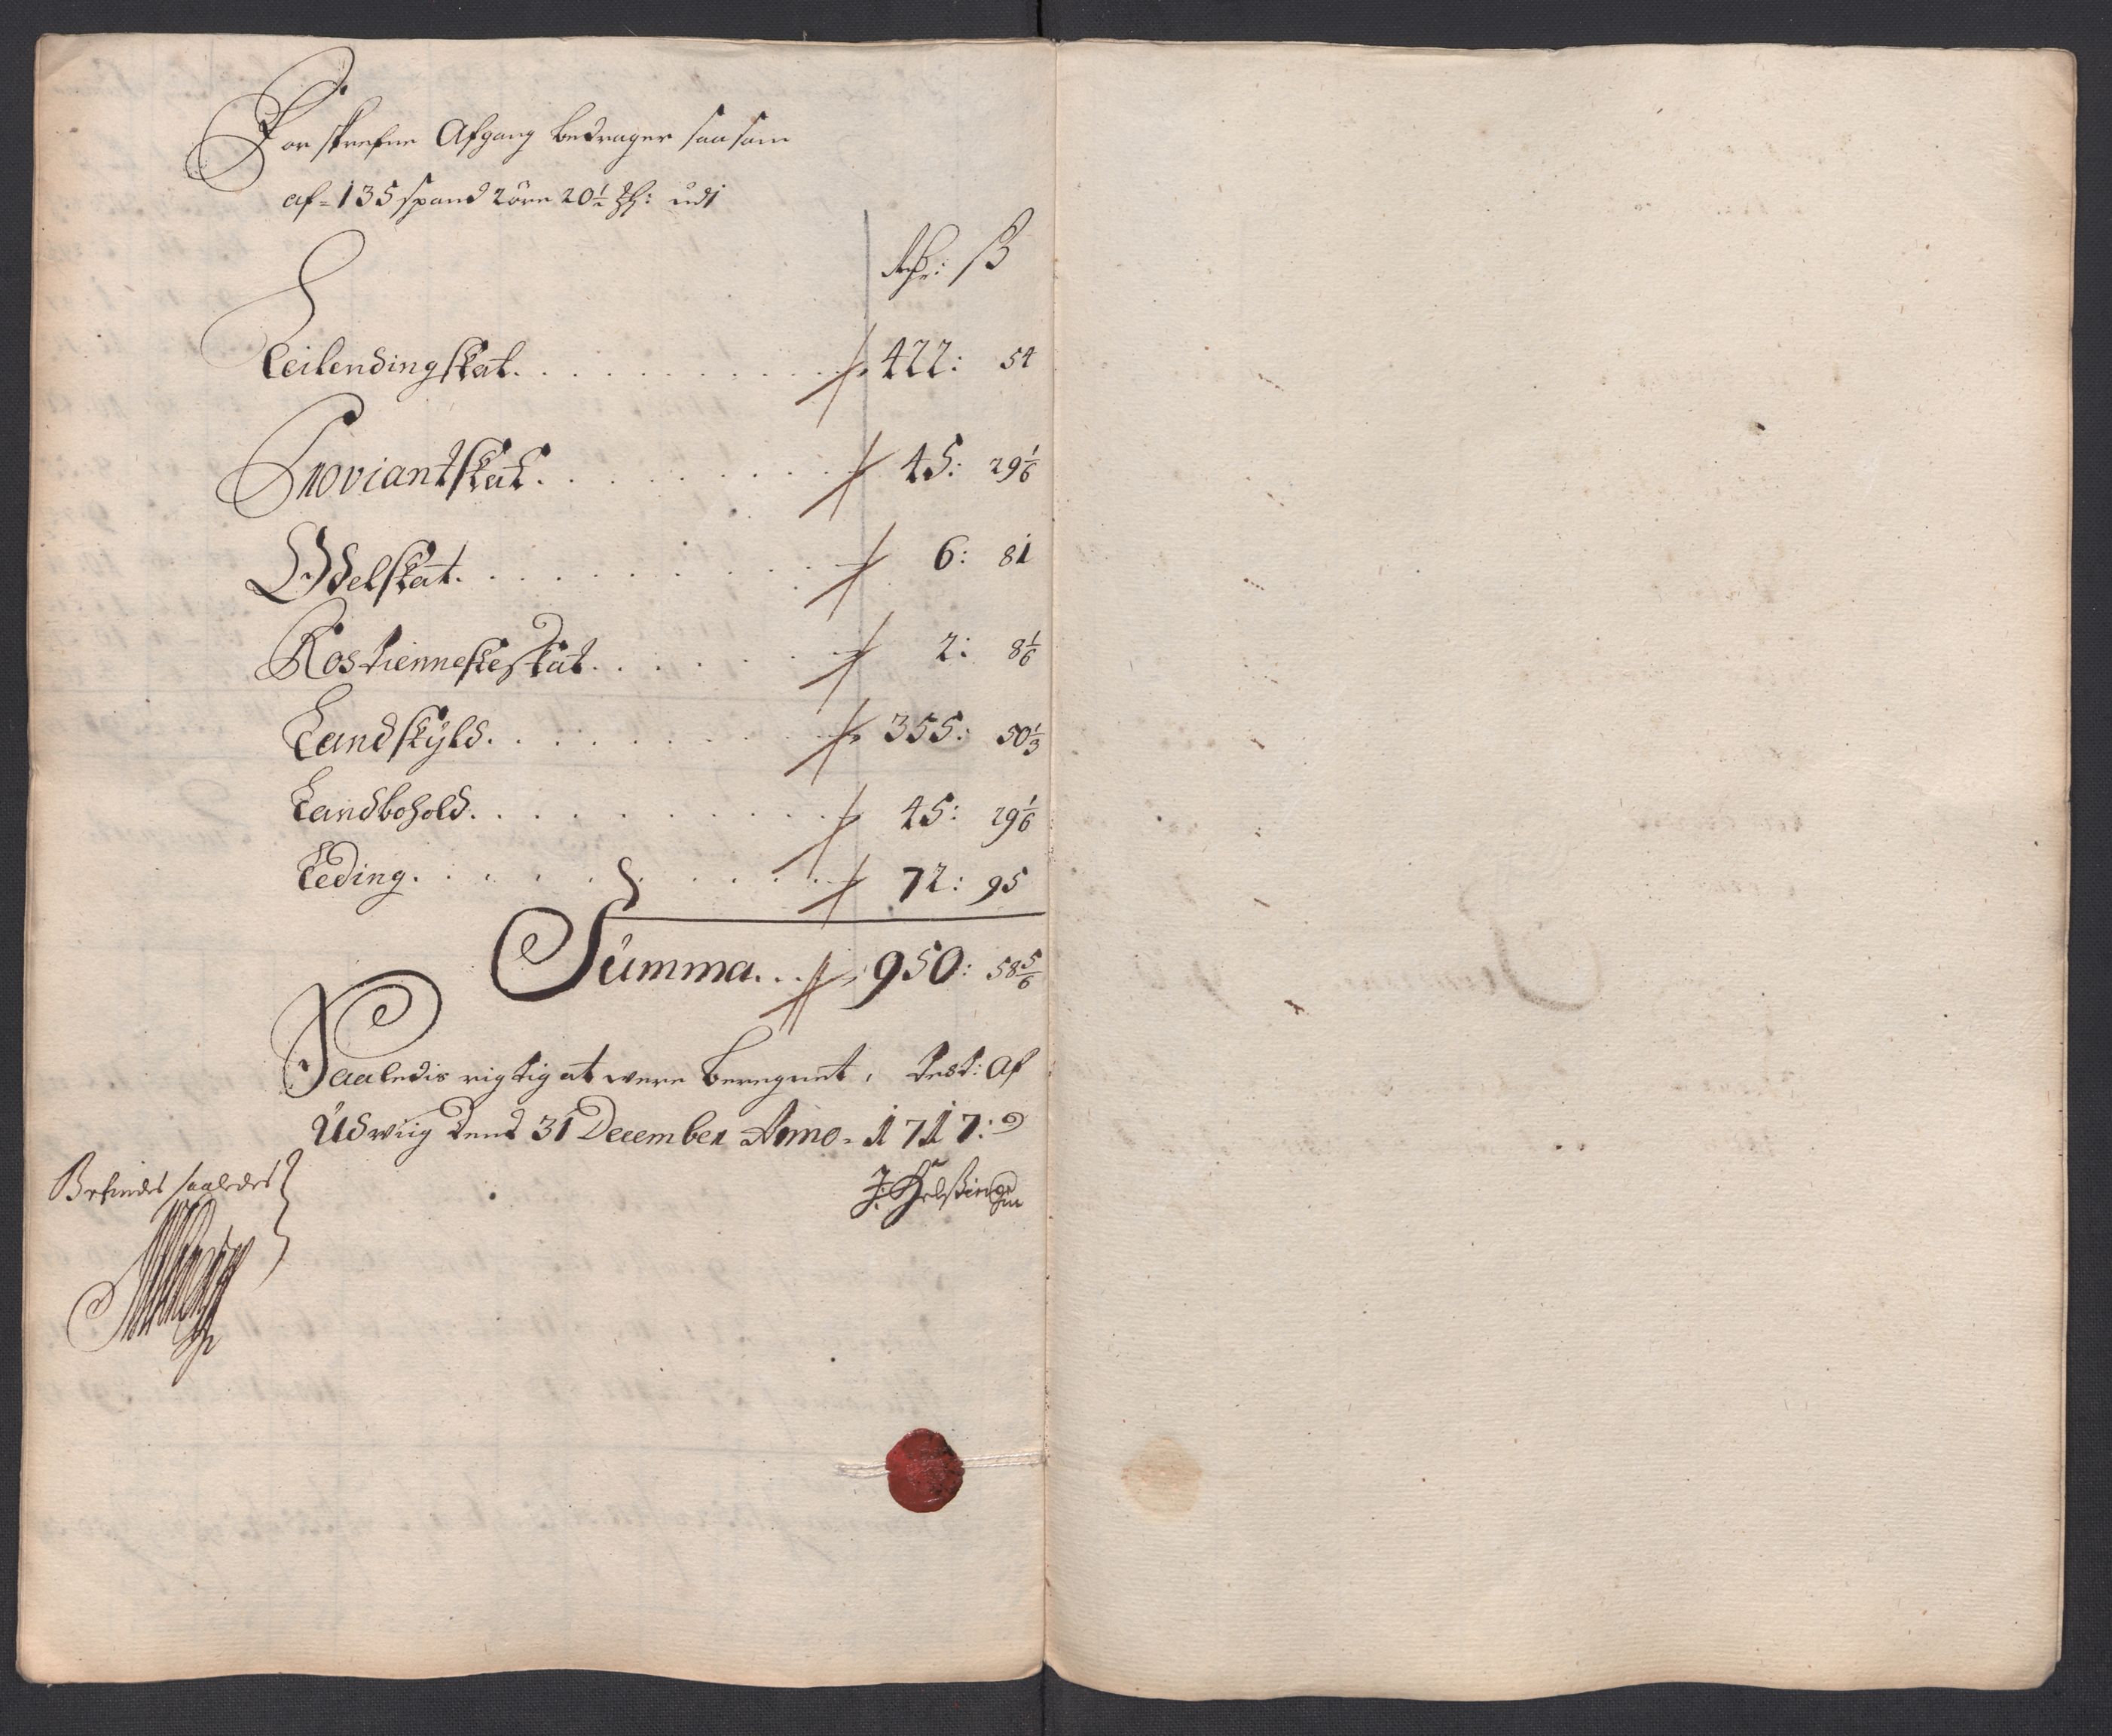 Forskrefne Afgang bedrager saasom
af 135 spand 2 öre 20 1/2 udi
Rdr: ß
Leilendingskat. . . . . . . . . . 422: 54
Proviantskat. . . . . . . . 45: 29 1/6
Odelskat. . . . . . . . . 6: 81
Rostienneste Skat. . . . . . 2: 8 1/6
Landskyld. . . . . . . . . 355: 50 1/3
Landbohold. . . . . . . . . 45: 29 1/6
Leding. . . . . . . . . 72: 95
Summa. . . 950: 58 5/6
Saaledis rigtig at were beregnet, Test: Af
Udwiig dend 31 December Anno 1717:
Befindes saaledes
J: Helsing